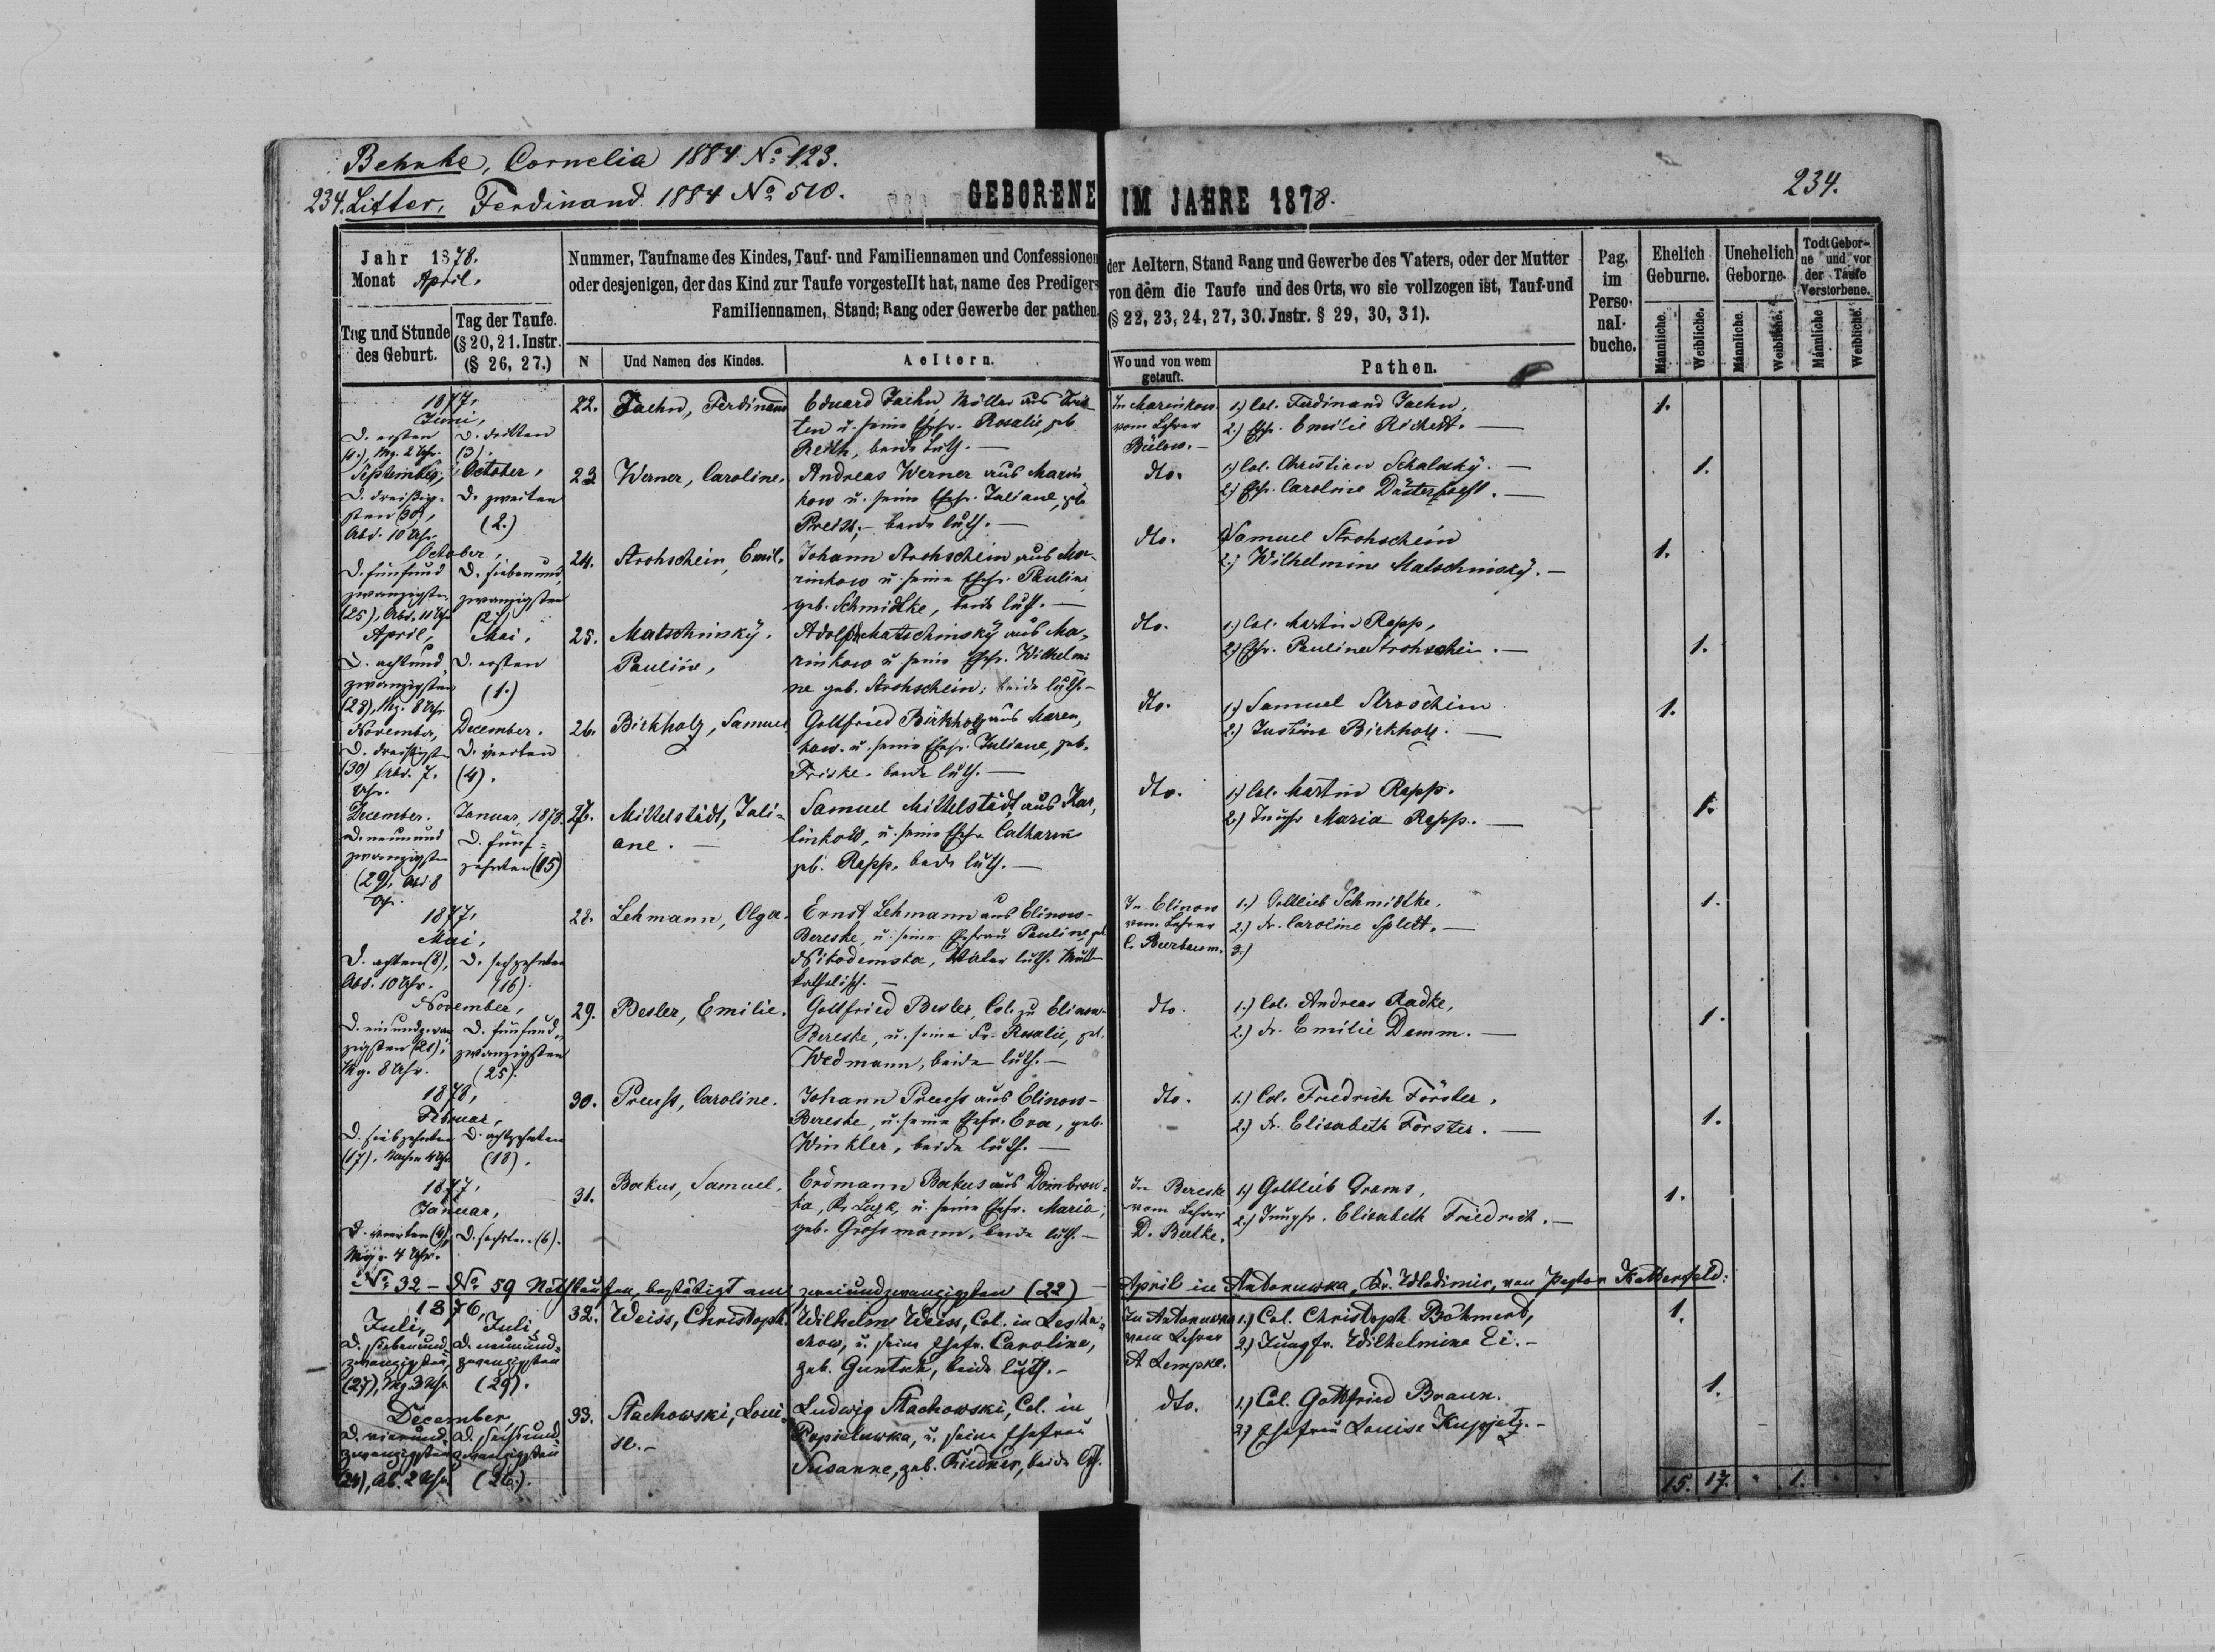 Behnke, Cornelia 1884 No 123.
234. Litter, Ferdinand 1884 No 510.
GEBORENE IM JAHRE 1878.
234.
Jahr 1878.
Monat April.
Tag und Stunde des Geburt.
Tag der Taufe.
(§ 20, 21. Instr.
(§ 26, 27.)
Nummer, Taufname des Kindes, Tauf- und Familiennamen und Confessionen der Aeltern, Stand Rang und Gewerbe des Vaters, oder der Mutter
oder desjenigen, der das Kind zur Taufe vorgestellt hat, name des Predigers von dem die Taufe und des Orts, wo sie vollzogen ist, Tauf-und
Familiennamen, Stand; Rang oder Gewerbe der pathen. (§ 22, 23, 24, 27, 30. Jnstr. § 29, 30, 31).
N
Und Namen des Kindes.
Aeltern.
Wo und von wem getauft.
Pathen.
Pag. im Perso-nal-buche.
Ehelich Geburne.
Unehelich Geborne.
Todt Gebor-ne und vor der Taufe Verstorbene.
Männliche.
Weibliche.
Männliche.
Weibliche.
Männliche
Weibliche.
1877,
Juni,
D. ersten
(1.), Mg. 2 Uhr.
D. dritten
(3).
22.
Jaehn, Ferdinand
Eduard Jaehn Müller aus
ten u. seine Ehefr. Rosalie, geb
Reith, beide luth. —
In Marinkow
vom Lehrer
Bülow. —
1.) Col. Ferdinand Jaehn,
2.) Ehfr. Emilie Richert. —
1.
September,
D. dreißig-
sten (30),
Abd. 10 Uhr.
October,
D. zweiten
(2.)
23
Werner, Caroline.
Andreas Werner aus Marin
kow u. seine Ehefr. Juliane, geb
Preiss, — beide luth. —
dto.
1.) Col. Christian Schalosky. —
2.) Ehfr. Caroline —
1.
October,
D. fünfund
zwanzigsten
(25), Abd. 11 Uhr
D. siebenund
zwanzigsten
(27)
24.
Strohschein, Emil.
Johann Strohschein, aus Ma-
rinkow u. seine Ehefr. Pauline
geb. Schmidtke, beide luth. —
dto.
1) Samuel Strohschein
2.) Wilhelmine Matschinsky. —
1.
April,
D. achtund
zwanzigsten
(28), Mg. 8 Uhr
Mai,
D. ersten
(1.)
25.
Matschinsky,
Pauline,
Adolph Matschinsky aus Ma-
rinkow u seine Ehefr. Wilhelmi
ne geb. Strohschein; beide luth. —
dto.
1.) Col. Martin Rapp,
2.) Ehfr. Pauline Strohschein. —
1.
November,
D. dreißigsten
(30) Abd. 7.
Uhr.
December.
D. vierten
(4).
26.
Birkholz, Samuel
Gottfried Birkholz aus Maren,
kow. u. seine Ehefr. Juliane, geb.
Friske. beide luth. —
dto.
1.) Samuel Stroschein
2.) Justine Birkholz. —
1.
December.
D. neunund
zwanzigsten
(29), Abd. 8
Uhr.
Januar, 1878.
D. fünf-
zehnten (15)
27.
Mittelstädt, Juli-
ane. —
Samuel Mittelstädt, aus Kar,
linkow, u. seine Ehefr. Catharine
geb. Rapp, beide luth. —
dto.
1.) Col. Martin Rapp.
2.) Jungfr Maria Rapp. —
1.
1877,
Mai,
D. achten (8),
Abd. 10 Uhr.
D. sechzehnten
(16).
28.
Lehmann, Olga.
Ernst Lehmann aus Elinow-
Bereske, u. seine Ehefrau Pauline geb
Nikodemska, Vater luth. Mutt
katholisch. —
In Elinow
vom Lehrer
1.) Gottlieb Schmidtke.
2.) Fr. Caroline Splett. —
3.)
1.
November,
D. einundzwan
zigsten (21),
Mg. 8 Uhr.
D. fünfund-
zwanzigsten
(25).
29.
Besler, Emilie.
Gottfried Besler, Col. zu Elinow-
Bereske, u. seine Fr. Rosalie, geb.
Wedmann, beide luth. —
dto.
1.) Col. Andreas Radke,
2.) Fr. Emilie Demm. —
1.
1878,
Februar,
D. siebzehnten
(17), Nachm 4 Uhr
D. achtzehnten
(18).
30.
Preuss, Caroline.
Johann Preuss aus Elinow-
Bereske, u. seine Ehefr. Eva, geb.
Winkler, beide luth. —
dto.
1.) Col. Friedrich Förster,
2.) Fr. Elisabeth Förster. —
1.
1877,
Januar,
D. vierten (4),
Mrg. 4 Uhr.
D. sechsten (6).
31.
Bakus, Samuel.
Erdmann Bakus aus Dombrow-
ka, Kr. Luzk, u. seine Ehefr. Maria,
geb. Grossmann, beide luth. —
In Bereske
vom Lehrer
D. Beetke.
1.) Gottlieb Grams,
2.) Jungfr. Elisabeth Friedrich. —
1.
No 32 — No 59 Nothtaufen, bestätigt am zweiundzwanzigsten (22) — April in Antonuwka, Kr. Wladimir, von Pastor Kattensfeld:
1876,
Juli,
D. siebenund
zwanzigsten,
(27), Mg. 3 Uhr.
Juli,
D. neunund-
zwanzigsten
(29).
32.
Weiss, Christoph.
Wilhelm Weiss, Col. in Lesha-
chow, u. seine Ehefr. Caroline,
geb. Guntsch, beide luth. —
In Antonuwka
vom Lehrer
A Lempke.
1.) Col. Christoph Böhmert,
2.) Jungfr. Wilhelmine Ei. —
1.
December,
D. vierund
zwanzigsten
(24), Ab. 2 Uhr
D. sechsund
zwanzigsten
(26).
33.
Stachowski, Loui-
se. —
Ludwig Stachowski, Col. in
Popieluwka, u. seine Ehefrau
Susanne, geb. Büdner, beide lth.
dto.
1.) Col. Gottfried Braun.
2) Ehefrau Louise Kupjetz. —
1.
15. 17. . 1. . .